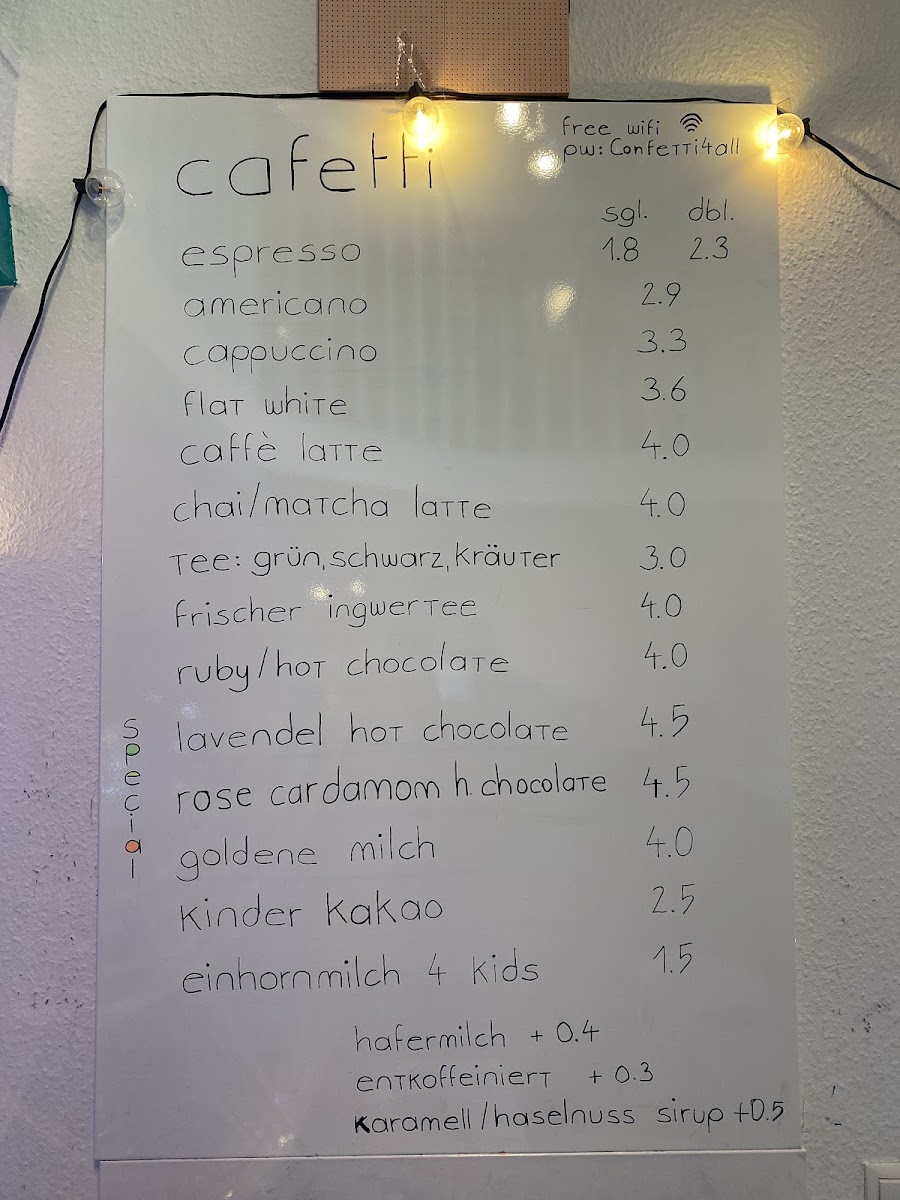 cafetti
free wifi
pw: Confetti4all
sgl. dbl.
espresso 1.8 2.3
americano 2.9
cappuccino 3.3
flat white 3.6
caffè latte 4.0
chai/matcha latte 4.0
Tee: grün, schwarz, kräuter 3.0
frischer ingwertee 4.0
ruby/hot chocolate 4.0
Special
lavendel hot chocolate 4.5
rose cardamom h. chocolate 4.5
goldene milch 4.0
kinder kakao 2.5
einhornmilch 4 kids 1.5
hafermilch + 0.4
entkoffeiniert + 0.3
karamell/haselnuss sirup +0.5